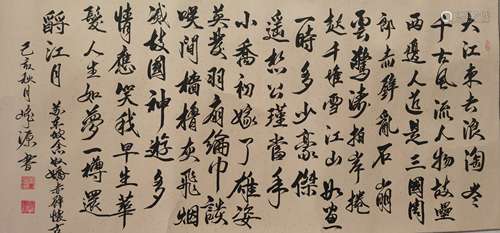 大江東去浪淘尽
千古風流人物故壘
西邊人道是三國周
郎赤壁亂石崩
雲驚濤拍岸捲
起千堆雪江山如畫
一時多少豪傑
遥想公瑾當年
小喬初嫁了雄姿
英發羽扇綸巾談
笑間檣櫓灰飛烟
滅故國神遊多
情應笑我早生華
髮人生如夢一樽還
酹江月
蘇東坡念奴嬌赤壁懷古
己亥秋月源書